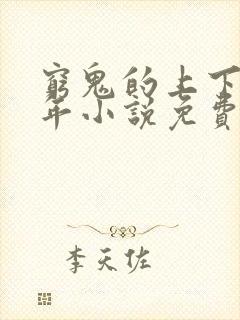 窮鬼的上下
年小說免費
李天佐